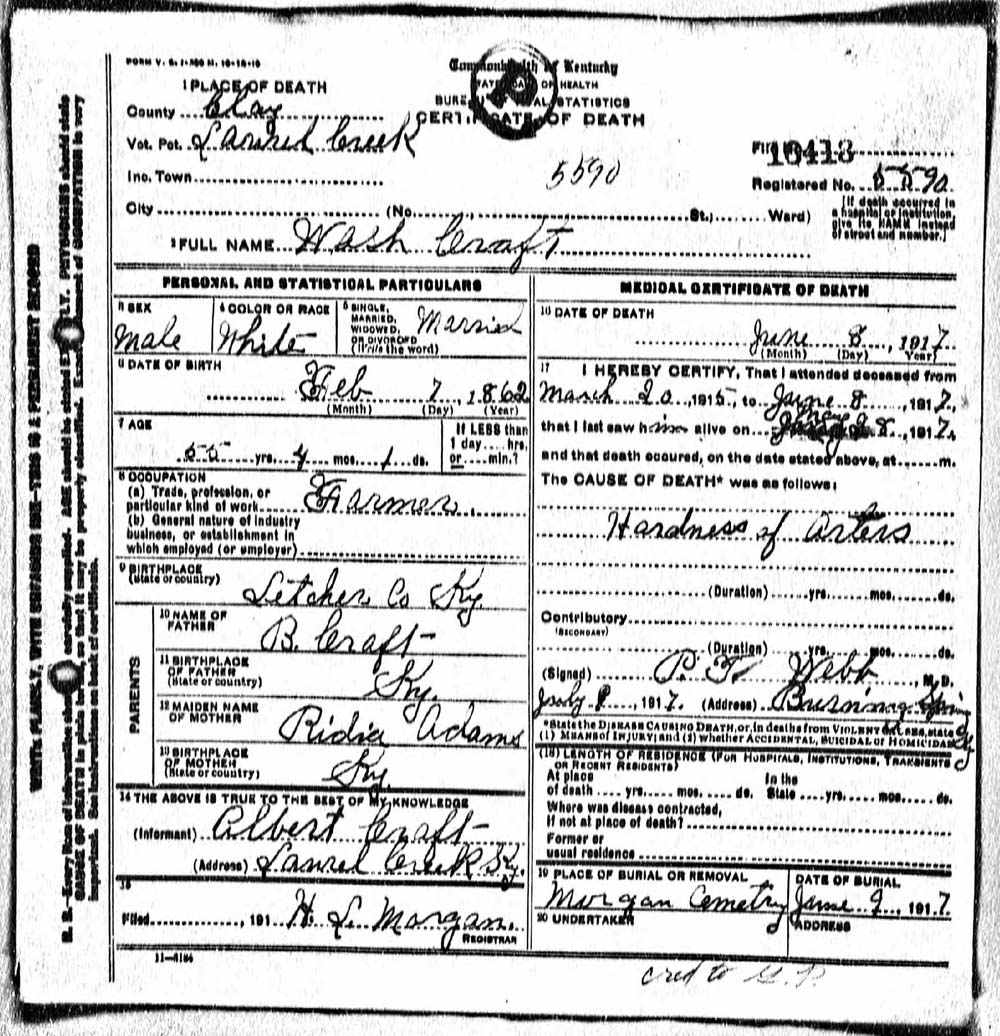 Commonwealth of Kentucky
1 PLACE OF DEATH
County Clay
BUREAU OF VITAL STATISTICS
CERTIFICATE OF DEATH
Vot. Pct. Laurel Creek
File No. 16413
Inc. Town
5590
Registered No. 5590
City (No. St., Ward)
[If death occurred in
a hospital or institution,
give its NAME instead
of street and number.]
2 FULL NAME Wash Craft
PERSONAL AND STATISTICAL PARTICULARS
3 SEX
Male
4 COLOR OR RACE
White
5 SINGLE,
MARRIED,
WIDOWED,
OR DIVORCED
(Write the word)
Married
6 DATE OF BIRTH
Feb 7, 1862
(Month) (Day) (Year)
7 AGE
55 yrs. 4 mos. 1 ds.
If LESS than
1 day.... hrs.
or.... min.?
8 OCCUPATION
(a) Trade, profession, or
particular kind of work Farmer
(b) General nature of industry
business, or establishment in
which employed (or employer)
9 BIRTHPLACE
(State or country)
Letcher Co Ky.
PARENTS
10 NAME OF
FATHER
B. Craft
11 BIRTHPLACE
OF FATHER
(State or country)
Ky.
12 MAIDEN NAME
OF MOTHER
Ridia Adams
13 BIRTHPLACE
OF MOTHER
(State or country)
Ky.
14 THE ABOVE IS TRUE TO THE BEST OF MY KNOWLEDGE
(Informant) Albert Craft
(Address) Laurel Creek Ky.
15
Filed, 191 H. L. Morgan.
REGISTRAR
11-3184
MEDICAL CERTIFICATE OF DEATH
16 DATE OF DEATH
June 8, 1917
(Month) (Day) (Year)
17 I HEREBY CERTIFY, That I attended deceased from
March 20, 1915, to June 8, 1917,
that I last saw him alive on 8, 1917,
and that death occured, on the date stated above, at m.
The CAUSE OF DEATH* was as follows:
Hardness of arters
(Duration) yrs. mos. ds.
Contributory
(SECONDARY)
(Duration) yrs. mos. ds.
(Signed) Webb, M. D.
July 9, 1917. (Address) Burning Spring Ky
*State the DISEASE CAUSING DEATH, or, in deaths from VIOLENT CAUSES, state
(1) MEANS of INJURY; and (2) whether ACCIDENTAL, SUICIDAL or HOMICIDAL
(18) LENGTH OF RESIDENCE (FOR HOSPITALS, INSTITUTIONS, TRANSIENTS
OR RECENT RESIDENTS)
At place In the
of death yrs. mos. ds. State yrs. mos. ds.
Where was disease contracted,
if not at place of death?
Former or
usual residence
19 PLACE OF BURIAL OR REMOVAL
Morgan Cemetry
DATE OF BURIAL
June 9, 1917
20 UNDERTAKER
ADDRESS
cred to G. P.
WRITE PLAINLY, WITH UNFADING INK—THIS IS A PERMANENT RECORD
N. B.—Every item of information should be carefully supplied. AGE should be stated EXACTLY. PHYSICIANS should state
CAUSE OF DEATH in plain terms, so that it may be properly classified. Exact statement of OCCUPATION is very
important. See instructions on back of certificate.